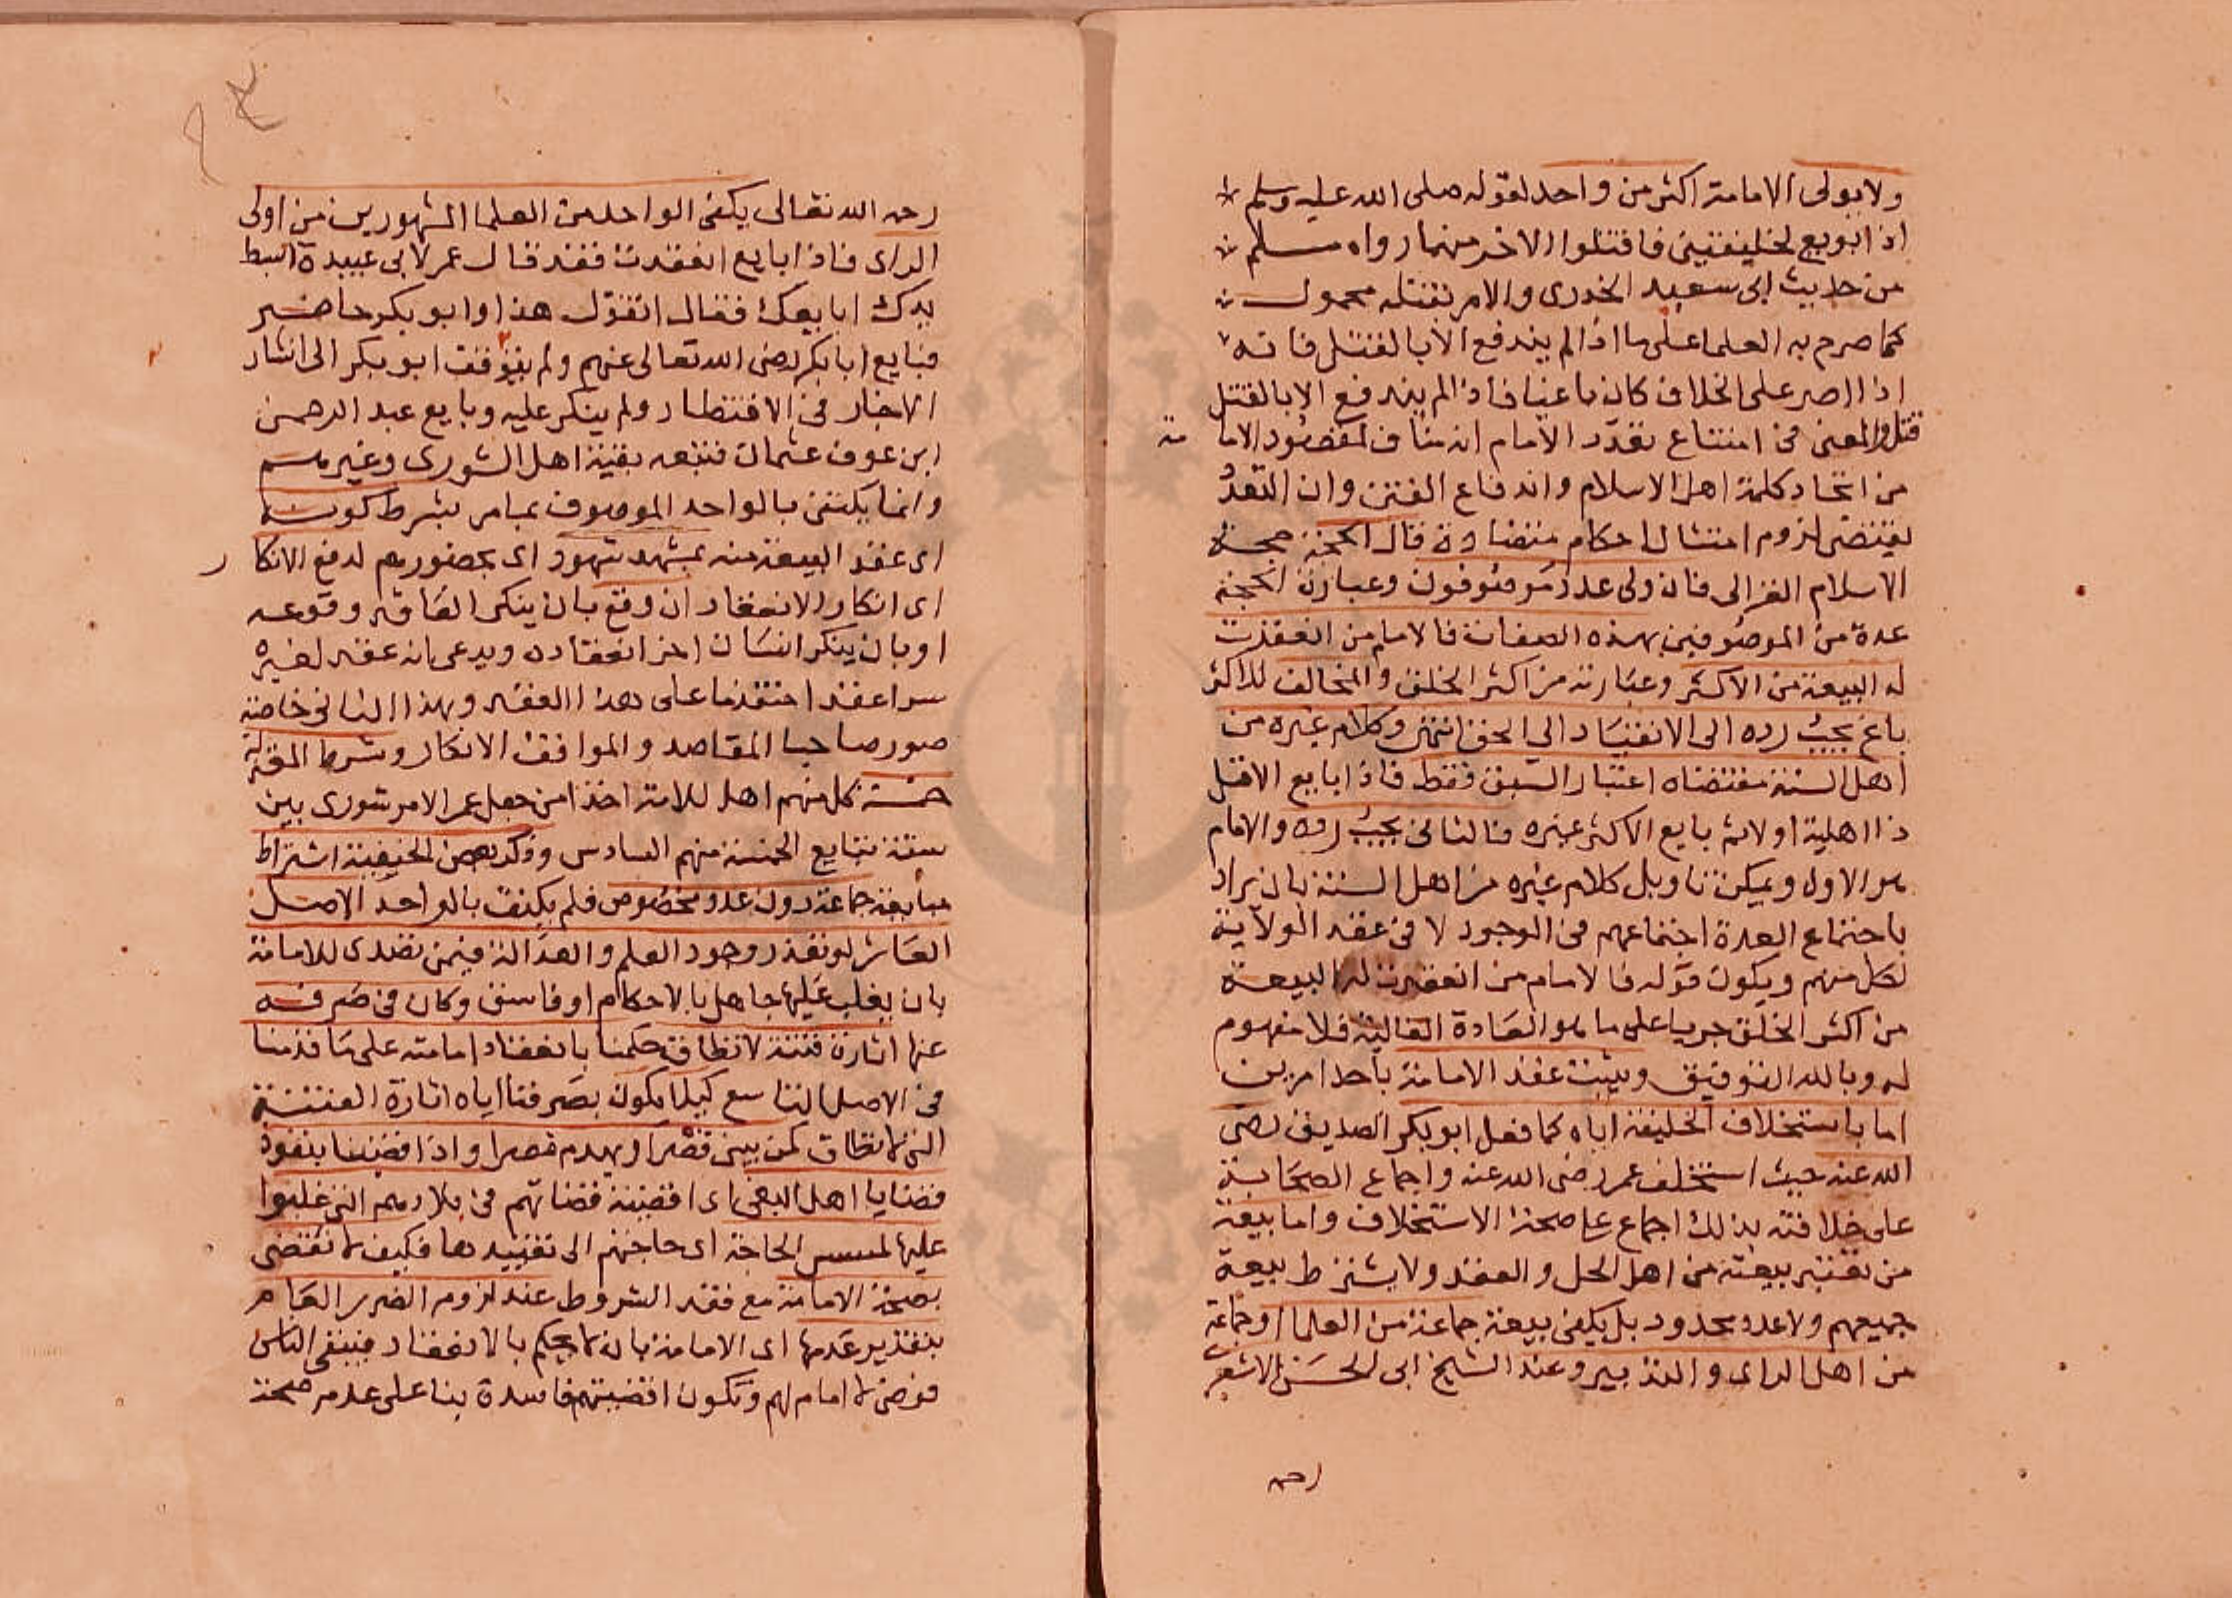 ولا يولى الامامة اكثر من واحد لقوله صلى الله عليه وسلم
اذا بويع لخليفتين فاقتلوا الاخر منهما رواه مسلم
من حديث ابى سعيد الخدرى والامر بقتله محمول
كما صرح به العلما على ما اذا لم يندفع الا بالقتل فانه
اذا اصر على الخلاف كان باغيا فاذا لم يندفع الا بالقتل
قتل والمعنى فى امتناع تعدد الامام انه مناف لمقصود الامامة
من اتحاد كلمة اهل الاسلام واندفاع الفتن وان التعدد
يقتضى لزوم امتثال احكام متضادة قال الحجة حجة
الاسلام الغزالى فان ولى عدد موصوفون وعبارة الحجة
عدة من الموصوفين بهذه الصفات فالامام من انعقدت
له البيعة من الاكثر وعبارته من اكثر الخلق والمخالف للاكثر
باغ يجب رده الى الانقياد الى الحق انتهى وكلام غيره من
اهل السنة مقتضاه اعتبار السبق فقط فاذا بايع الاقل
ذا اهلية اولا ثم بايع الاكثر غيره فالثانى يجب رده والامام
هو الاول ويمكن تاويل كلام غيره من اهل السنة بان يراد
باجتماع العدة اجتماعهم فى الوجود لا فى عقد الولاية
لكل منهم ويكون قوله فالامام من انعقدت له البيعة
من اكثر الخلق جريا على ما هو العادة الغالبة فلا مفهوم
له وبالله التوفيق ويثبت عقد الامامة باحد امرين
اما باستخلاف الخليفة اياه كما فعل ابو بكر الصديق رضى
الله عنه حيث استخلف عمر رضى الله عنه واجماع الصحابة
على خلافته بذلك اجماع على صحة الاستخلاف واما ببيعة
من تعتبر بيعته من اهل الحل والعقد ولا يشترط بيعة
جميعهم ولا عدد محدود بل يكفى بيعة جماعة من العلما او جماعة
من اهل الراى والتدبير وعند الشيخ ابى الحسن الاشعرى
رحمه
رحمه الله تعالى يكفى الواحد من العلما المشهورين من اولى
الراى فاذا بايع انعقدت فقد قال عمر لابى عبيدة ابسط
يدك ابايعك فقال اتقول هذا وابو بكر حاضر
فبايع ابا بكر رضى الله تعالى عنهم ولم يتوقف ابو بكر الى انتشار
الاخبار فى الاقطار ولم ينكر عليه وبايع عبد الرحمن
ابن عوف عثمان فتبعه بقية اهل الشورى وغيرهم
وانما يكتفى بالواحد الموصوف بما مر بشرط كونه
اى عقد البيعة منه بمشهد شهود اى بحضورهم لدفع الانكار
اى انكار الانعقاد ان وقع بان ينكر العاقد وقوعه
او بان ينكر انسان اخر انعقاده ويدعى انه عقد لغيره
سرا عقدا متقدما على هذا العقد وبهذا الثانى خاصة
صور صاحبا المقاصد والمواقف الانكار وشرط المعتزلة
خمسة كل منهم اهل للامة اخذا من جعل عمر الامر شورى بين
ستة يبايع الخمسة منهم السادس وذكر بعض الحنفية اشتراط
مبايعة جماعة دون عدد مخصوص فلم يكتف بالواحد الاصل
العاشر لو تعذر وجود العلم والعدالة فيمن تصدى للامامة
بان يغلب عليها جاهل بالاحكام او فاسق وكان فى صرفه
عنها اثارة فتنة لا تطاق حكمنا بانعقاد امامته على ما قدمنا
فى الاصل التاسع كيلا نكون بصرفنا اياه اثارة الفتنة
التى لا تطاق كمن يبنى قصرا ويهدم مصرا واذا قضينا بنفوذ
قضايا اهل البغى اى اقضية قضاتهم فى بلادهم التى غلبوا
عليها لمسيس الحاجة اى حاجتهم الى تنفيذها فكيف لا نقضى
بصحة الامامة مع فقد الشروط عند لزوم الضرر العام
بتقدير عدمها اى الامامة بان لا يحكم بالانعقاد فيبقى الناس
فوضى لا امام لهم وتكون اقضيتهم فاسدة بنا على عدم صحة